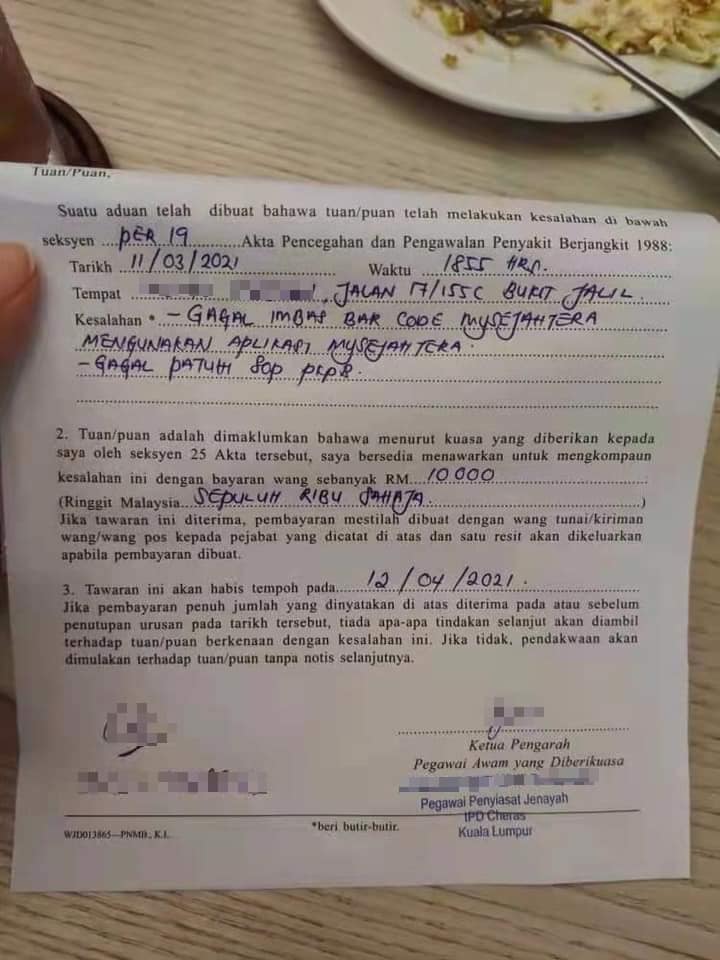 Tuan/Puan,
Suatu aduan telah dibuat bahawa tuan/puan telah melakukan kesalahan di bawah
seksyen PER 19 Akta Pencegahan dan Pengawalan Penyakit Berjangkit 1988:
Tarikh 11/03/2021 Waktu 1855 HRS.
Tempat , JALAN 17/155C BUKIT JALIL.
Kesalahan * – GAGAL IMBAS BAR CODE MYSEJAHTERA
MENGUNAKAN APLIKASI MYSEJAHTERA.
– GAGAL PATUH SOP PKPB.
2. Tuan/puan adalah dimaklumkan bahawa menurut kuasa yang diberikan kepada
saya oleh seksyen 25 Akta tersebut, saya bersedia menawarkan untuk mengkompaun
kesalahan ini dengan bayaran wang sebanyak RM 10 000
(Ringgit Malaysia SEPULUH RIBU SAHAJA.)
Jika tawaran ini diterima, pembayaran mestilah dibuat dengan wang tunai/kiriman
wang/wang pos kepada pejabat yang dicatat di atas dan satu resit akan dikeluarkan
apabila pembayaran dibuat.
3. Tawaran ini akan habis tempoh pada 12/04/2021.
Jika pembayaran penuh jumlah yang dinyatakan di atas diterima pada atau sebelum
penutupan urusan pada tarikh tersebut, tiada apa-apa tindakan selanjut akan diambil
terhadap tuan/puan berkenaan dengan kesalahan ini. Jika tidak, pendakwaan akan
dimulakan terhadap tuan/puan tanpa notis selanjutnya.
Ketua Pengarah
Pegawai Awam yang Diberikuasa
Pegawai Penyiasat Jenayah
IPD Cheras
Kuala Lumpur
*beri butir-butir.
WJD013865—PNMB., K.L.